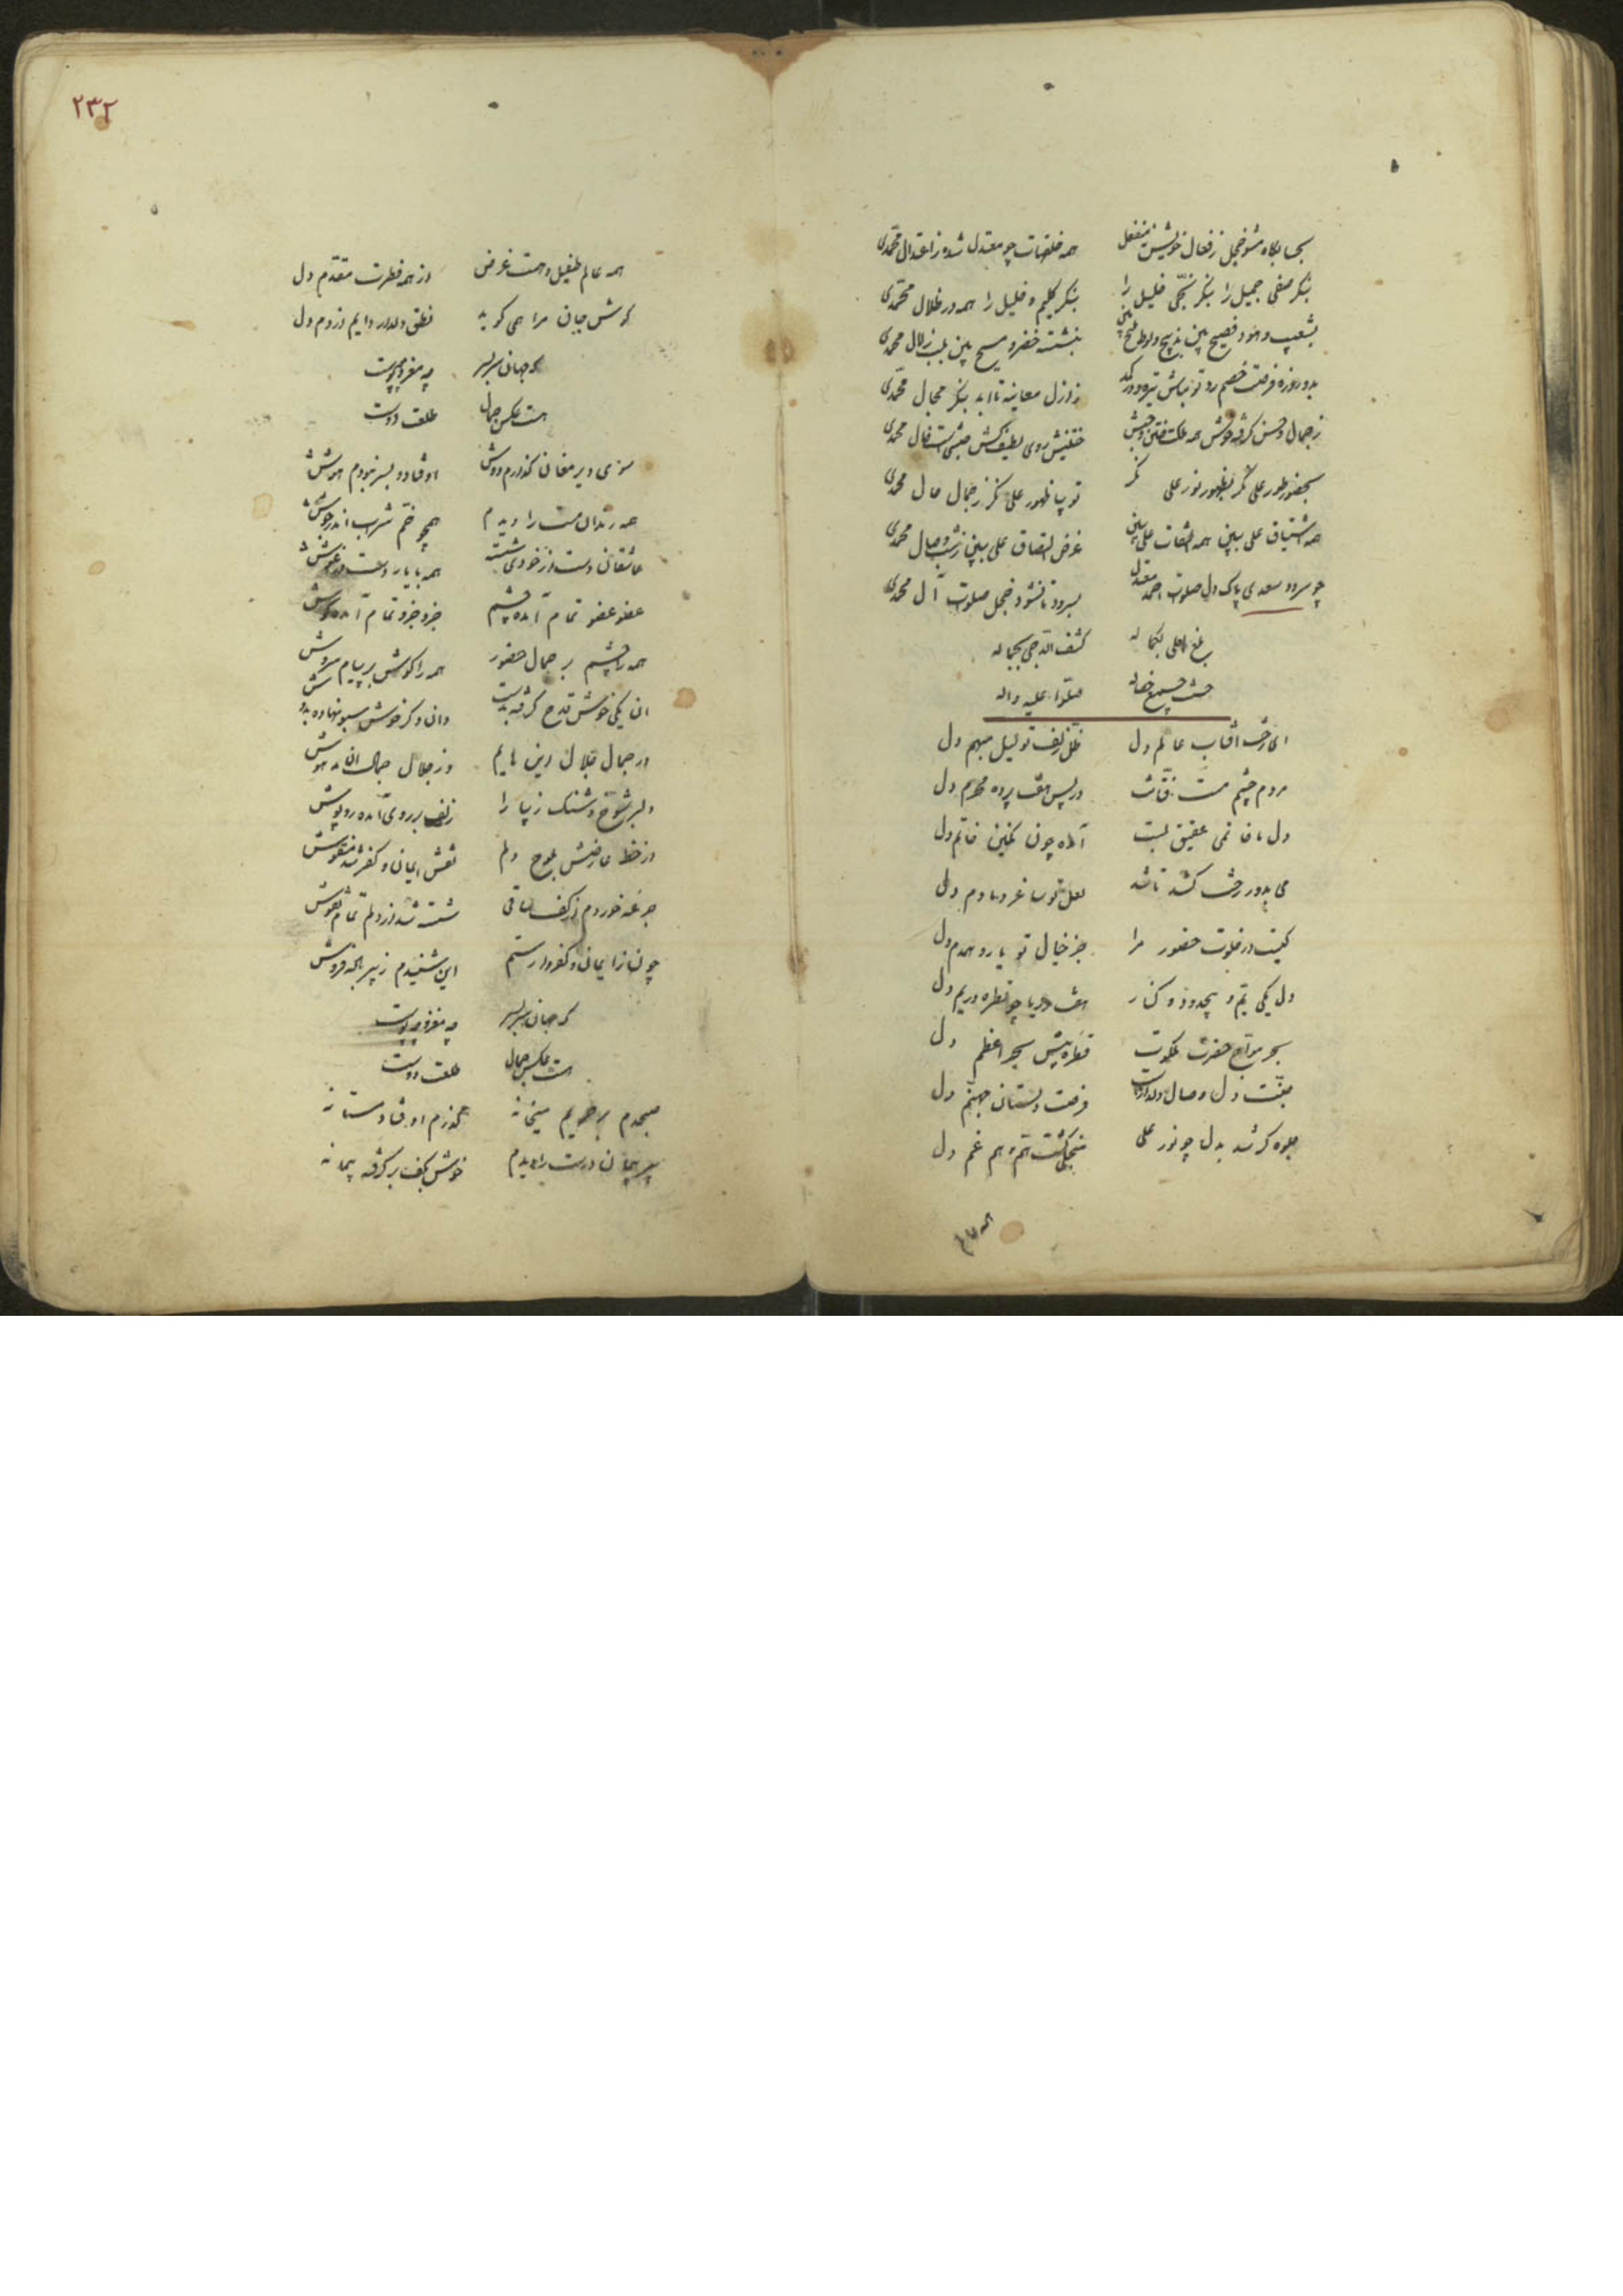 همه خلقهات چو معتدل شده ز اعتدال محمدی
بنکر صفی جمیل را بنکر نجی خلیل را بنکر کلیم و خلیل را همه در ظلال محمدی
بنشسته خضر و مسیح بین بلب زلال محمدی
ز ازل معاینه تا ابد بنکر مجال محمدی
بحضور طور علی نکر بظهور نور علی نکر تو بیا ظهور علی نکر ز جمال حال محمدی
همه اشتیاق علی ببین همه اتفاق علی ببین غرض التصاق علی ببین ز شب وصال محمدی
چو سرود سعدی پاک دل صلوات احمد معتدل بسرود تا نشود خجل صلوات آل محمدی
بلغ العلی بکماله کشف الدجی بجماله
حسنت جمیع خصاله صلوا علیه و اله
ای رخت افتاب عالم دل ظل زلف تو لیل مبهم دل
مردم چشم مست فتانت در پس هفت پرده محرم دل
دل ما خاتمی عقیق لبت آمده چون نکین خاتم دل
می بدور رخت کشد تا شد لعل تو ساغر دمادم دل
کیست در خلوت حضور مرا جز خیال تو یار و همدم دل
دل یکی یم و بیحدود و کنار هفت دریا چو قطره در یم دل
بحر مواج حضرت ملکوت قطره پیش بحر اعظم دل
جنت دل وصال دلدارست فرقت دلستان جهنم دل
جلوه کر شد بدل چو نور علی منجلی کشت هم و هم غم دل
۲۳۲
همه عالم طفیل و هست غرض از همه فطرت مقدم دل
کوش جان مرا همی کوید نطق دلدار دایم از دم دل
که جهان سربسر چه مغز و چه پوست
هست عکس جمال طلعت دوست
سوی دیر مغان کذارم دوش اوفتاد و بسر نبودم هوش
همه رندان مست را دیدم همچو خم شراب اندر جوش
عاشقان دست از خودی شسته همه با یار دست در آغوش
عضو عضو تمام آمده چشم جزو جزو تمام آمده کوش
همه را چشم بر جمال حضور همه را کوش بر پیام سروش
ان یکی خوش قدح کرفته بدست وان دکر خوش سبو نهاده بدوش
در جمال جلال این هایم وز جلال جمال ان مدهوش
دلبر شوخ و شنک زیبا را زلف بر روی آمده روپوش
از خط عارضش بلوح دلم نقش ایمان و کفر شد منقوش
جرعه خوردم از کف ساقی شسته شد از دلم تمام نقوش
چونکه از ایمان و کفر وارستم این شنیدم ز پیر باده فروش
که جهان سربسر چه مغز و چه پوست
هست عکس جمال طلعت دوست
صبحدم بر حریم میخانه کذرم اوفتاد مستانه
پیر پیمان درست را دیدم خوش بکف بر کرفته پیمانه